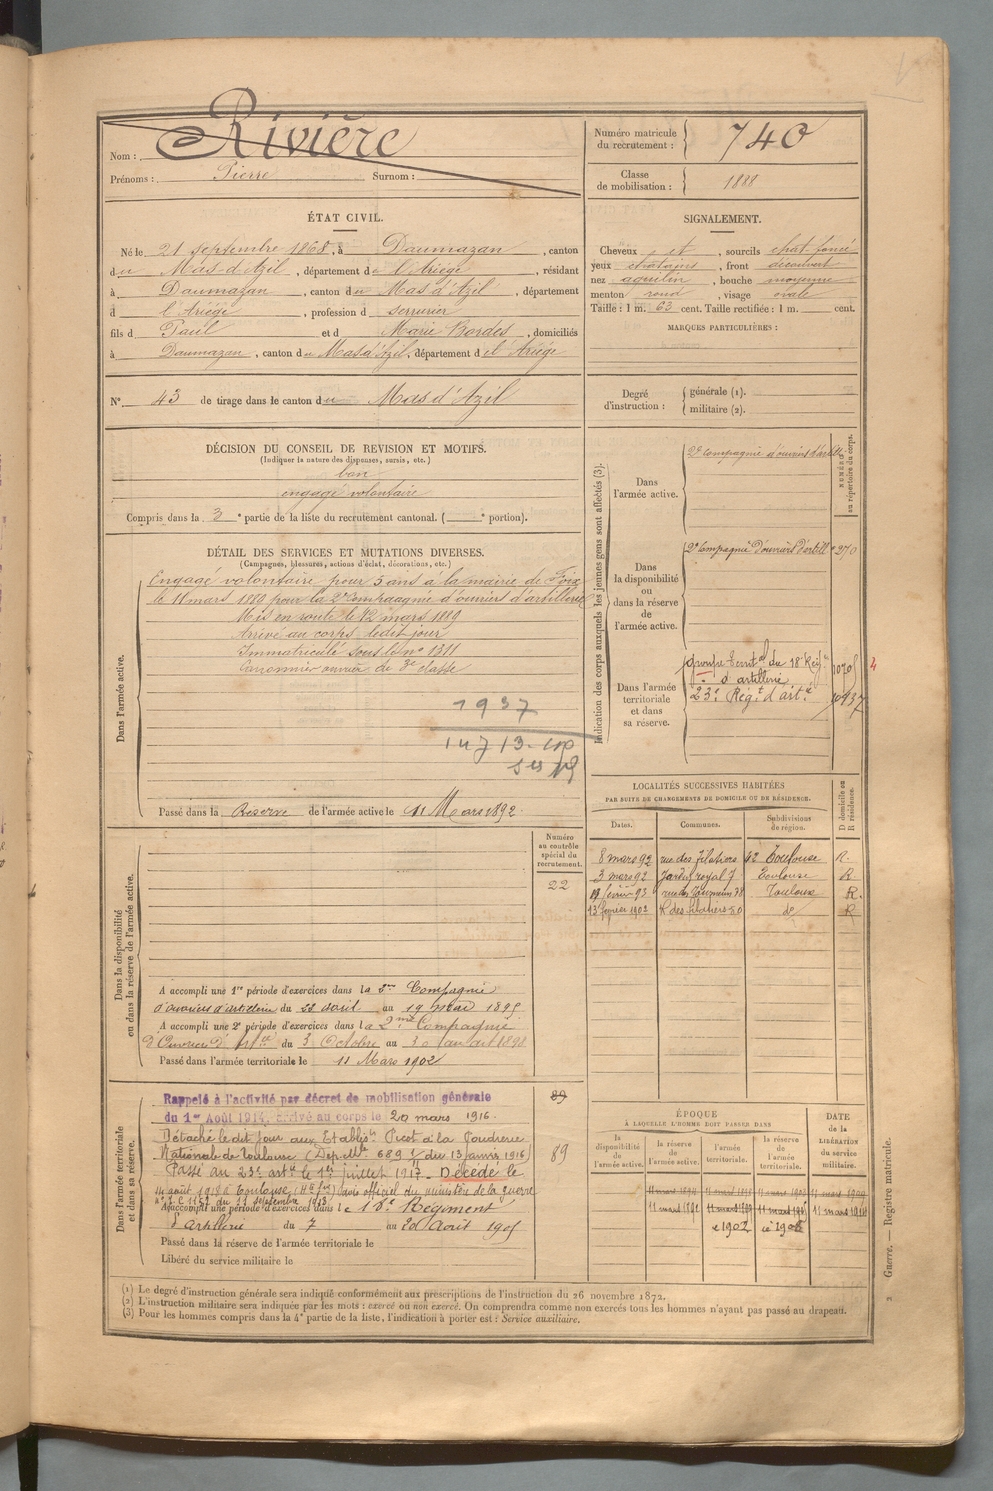 Nom : Rivière
Prénoms : Pierre Surnom :
Numéro matricule du recrutement : 740
Classe de mobilisation : 1888
ÉTAT CIVIL.
Né le 21 septembre 1868, à Daumazan, canton
du Mas d'Azil, département de l'Ariège, résidant
à Daumazan, canton du Mas d'Azil, département
d l'Ariège, profession d serrurier
fils d Paul et d Marie Bordes, domiciliés
à Daumazan, canton du Mas d'Azil, département d el Ariège
N° 43 de tirage dans le canton du Mas d'Azil
SIGNALEMENT.
Cheveux et, sourcils chat. foncé
yeux chatains, front découvert
nez aquilin, bouche moyenne
menton rond, visage ovale
Taille : 1 m. 63 cent. Taille rectifiée : 1 m. cent.
MARQUES PARTICULIÈRES :
Degré d'instruction : générale (1).
militaire (2).
DÉCISION DU CONSEIL DE REVISION ET MOTIFS.
(Indiquer la nature des dispenses, sursis, etc.)
bon
engagé volontaire
Compris dans la 3e partie de la liste du recrutement cantonal. ( e portion).
DÉTAIL DES SERVICES ET MUTATIONS DIVERSES.
(Campagnes, blessures, actions d'éclat, décorations, etc.)
Dans l'armée active.
Engagé volontaire pour 5 ans à la mairie de Foix
le 11 mars 1889 pour la 2e Compagnie d'ouvriers d'artillerie
Mis en route le 12 mars 1889
Arrivé au corps ledit jour
Immatriculé sous le n° 1311
Canonnier ouvrier de 3e classe
1937
Passé dans la Réserve de l'armée active le 11 Mars 1892.
Indication des corps auxquels les jeunes gens sont affectés (3).
NUMÉRO au répertoire du corps.
Dans l'armée active.
2e Compagnie d'ouvriers d'art
Dans la disponibilité ou dans la réserve de l'armée active.
2e Compagnie d'ouvriers d'artill 270
Dans l'armée territoriale et dans sa réserve.
Groupe territal du 18e Régt
d'artillerie
23e Régt d'artie
LOCALITÉS SUCCESSIVES HABITÉES
PAR SUITE DE CHANGEMENTS DE DOMICILE OU DE RÉSIDENCE.
Dates. Communes. Subdivisions de région. D domicile ou R résidence.
8 mars 92 rue des filatiers 42 Toulouse R.
3 mars 92 Jardin royal 7 Toulouse R.
février 93 38 Toulouse R.
13 février 1902 R des filatiers 20 de R
Numéro au contrôle spécial du recrutement.
22
Dans la disponibilité ou dans la réserve de l'armée active.
A accompli une 1re période d'exercices dans la Compagnie
d'ouvriers d'artillerie du 22 avril au 19 mai 1895
A accompli une 2e période d'exercices dans la 2me Compagnie
d'Ouvriers d'Artie du 3 Octobre au 30 1898
Passé dans l'armée territoriale le 11 Mars 1902
Dans l'armée territoriale et dans sa réserve.
89
89
Rappelé à l'activité par décret de mobilisation générale
du 1er Août 1914, arrivé au corps le 20 mars 1916.
Détaché le dit jour aux Etablists Picot à la Poudrerie
Nationale de Toulouse (Dép. elle 689 du 13 janvier 1916)
Passé au 23e artie le 1er juillet 1917. Décédé le
14 août 1918 à Toulouse (Hte Gne) (avis officiel du ministère de la guerre
du 11 septembre 1918
A accompli une période d'exercices dans le 18e Régiment
d'Artillerie du 7 au 20 Août 1905
Passé dans la réserve de l'armée territoriale le
Libéré du service militaire le
ÉPOQUE
À LAQUELLE L'HOMME DOIT PASSER DANS
la disponibilité de l'armée active. la réserve de l'armée active. l'armée territoriale. la réserve de l'armée territoriale.
DATE de la LIBÉRATION du service militaire.
11 mars 1894
11 mars 1892
1902
11 mars 1914
(1) Le degré d'instruction générale sera indiqué conformément aux prescriptions de l'instruction du 26 novembre 1872.
(2) L'instruction militaire sera indiquée par les mots : exercé ou non exercé. On comprendra comme non exercés tous les hommes n'ayant pas passé au drapeau.
(3) Pour les hommes compris dans la 4e partie de la liste, l'indication à porter est : Service auxiliaire.
Guerre. — Registre matricule.